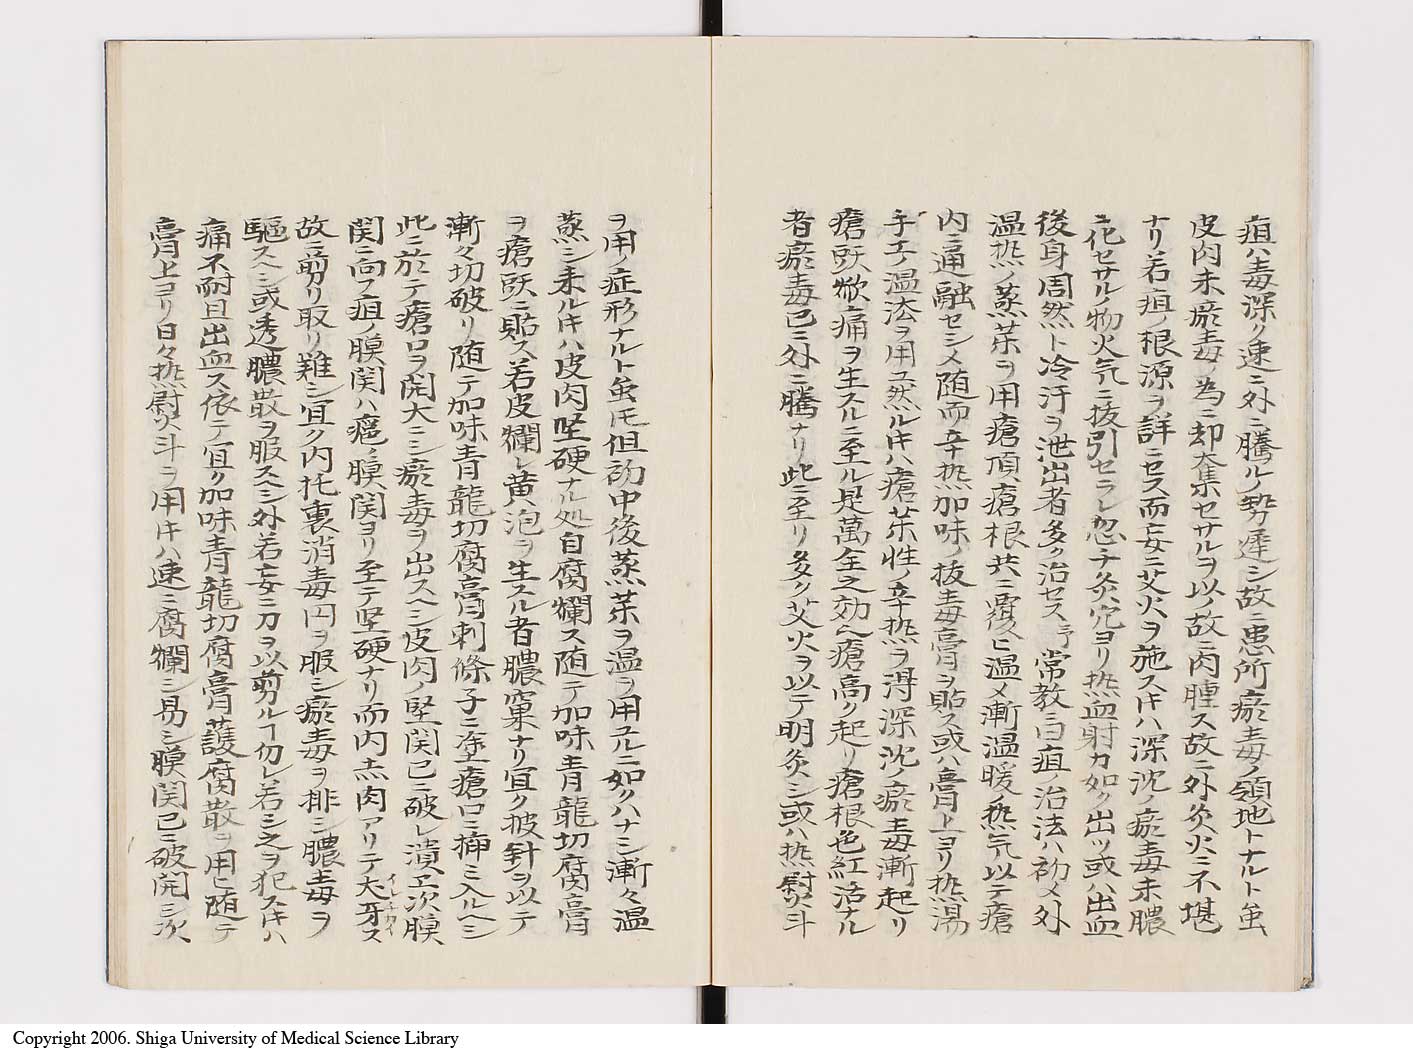 疽ハ毒深ク速ニ外ニ騰ルノ勢遅シ故ニ患所瘀毒ノ領地トナルト虽
皮肉未瘀毒ノ為ニ却奪集セサルヲ以ノ故ニ肉腫ス故ニ外灸火ニ不堪
ナリ若疽ノ根源ヲ詳ニセス而妄ニ艾火ヲ施スキハ深沈ノ瘀毒未膿
ニ化セサルノ物火気ニ抜引セラレ忽チ灸穴ヨリ热血射カ如ク出ツ或ハ出血
後身周然ト冷汗ヲ泄出者多ク治セス予常教曰疽ノ治法ハ初メ外
温热ノ蒸茶ヲ用瘡頂瘡根共ニ覆ヒ温メ漸温暖ノ热気以テ瘡
内ニ通融セシメ随而辛热加味ノ抜毒膏ヲ貼ス或ハ膏上ヨリ热湯
手ニテ温法ヲ用ユ然ルキハ瘡茶性ノ辛热ヲ得深沈ノ瘀毒漸起リ
瘡頭焮痛ヲ生スルニ至ル是萬全之効ヘ瘡高ク起リ瘡根色紅活ナル
者瘀毒已ニ外ニ騰ナリ此ニ至リ多ク艾火ヲ以テ明灸シ或ハ热熨斗
ヲ用ノ症形ナルト虽モ但初中後蒸茶ヲ温ヲ用ユルニ如クハナシ漸々温
蒸シ来ルキハ皮肉坚硬ナル処自腐爛ス随テ加味青龍切腐膏
ヲ瘡頭ニ貼ス若皮爛レ黄泡ヲ生スル者膿窠ナリ宜ク披針ヲ以テ
漸々切破リ随テ加味青龍切腐膏刺條子ニ塗瘡口ニ挿ミ入ルヘシ
此ニ於テ瘡口ヲ開大ニシ瘀毒ヲ出スヘシ皮肉ノ坚関已ニ破レ潰ユ次膜
関ニ向フ疽ノ膜関ハ癰ノ膜関ヨリ至テ坚硬ナリ而内赤肉アリテ犬牙ス
イレチガイ
故ニ剪リ取リ難シ宜ク内托裏消毒円ヲ服シ瘀毒ヲ排シ膿毒ヲ
驅スヘシ或透膿散ヲ服スヘシ外若妄ニ刀ヲ以剪ルヿ勿レ若シ之ヲ犯スキハ
痛不耐且出血ス依テ宜ク加味青龍切腐膏護腐散ヲ用ヒ随テ
膏上ヨリ日々热熨斗ヲ用キハ速ニ腐爛シ易シ膜関已ニ破開シ次
Copyright 2006. Shiga University of Medical Science Library